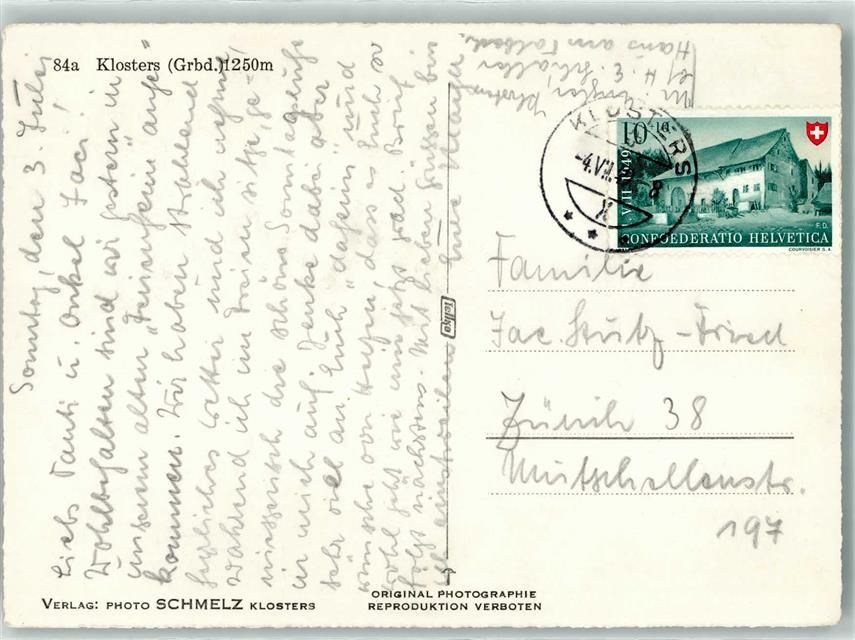 84a Klosters (Grbd.) 1250m
Sonntag, den 3. Juli
Liebs Tanti u. Onkel Jac!
Wohlbehalten sind wir gestern in
unserem alten "Ferienheim" ange-
kommen. Wir haben strahlend
herrliches Wetter und ich nehme
während ich im Freien sitze, ge-
niesserisch die schöne Sonntagsruhe
in mich auf. Denke dabei aber
sehr viel an Euch "daheim" und
wünsche von Herzen, dass es Euch so
wohl geht wie uns jetzt grad. Brief
folgt nächstens. Mit lieben Grüssen bin
ich Eure
Klosters
Hans am Talbach
KLOSTERS
-4.VII.49-8
X
10+10
VIII 1949
CONFOEDERATIO HELVETICA
F.D.
COURVOISIER S.A.
Familie
Jac. Stutz-Fried
Zürich 38
Mutschellenstr.
197
Tellko
VERLAG: PHOTO SCHMELZ KLOSTERS
ORIGINAL PHOTOGRAPHIE
REPRODUKTION VERBOTEN